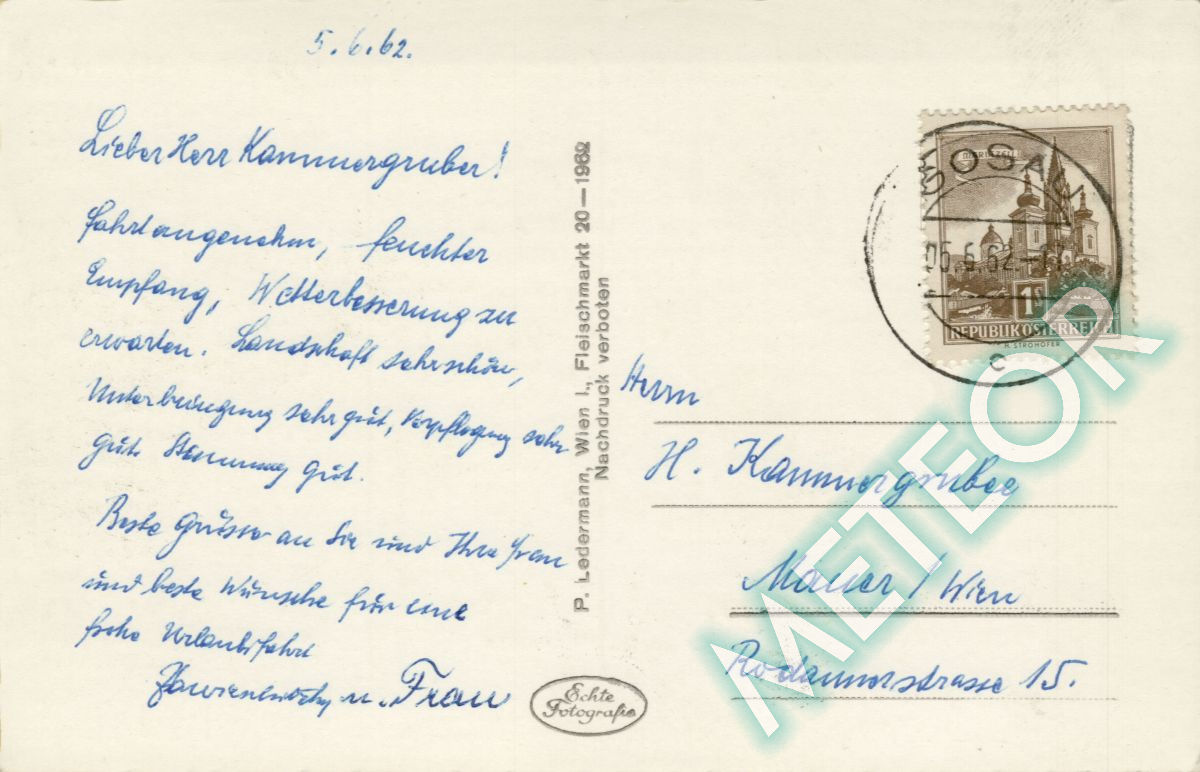 5.6.62.
Lieber Herr Kammergruber!
Fahrt angenehm, feuchter
Empfang, Wetterbesserung zu
erwarten. Landschaft sehr schön,
Unterbringung sehr gut, Verpflegung sehr
gut. Stimmung gut.
Beste Grüsse an Sie und Ihre Frau
und beste Wünsche für eine
frohe Urlaubsfahrt
u. Frau
P. Ledermann, Wien I., Fleischmarkt 20—1962
Nachdruck verboten
Echte
Fotografie
MARIAZELL
GOSAU
06.6.62
c
1S
REPUBLIK ÖSTERREICH
H. STROHOFER
Herrn
H. Kammergruber
Mauer / Wien
Rodaunerstrasse 15.
METEOR